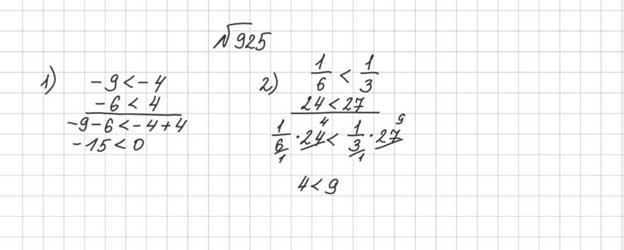 √925
1) -9 < -4
-6 < 4
-9-6 < -4+4
-15 < 0
2) 1/6 < 1/3
24 < 27
1/6 · 24 < 1/3 · 27
4 9
1 1
4 < 9